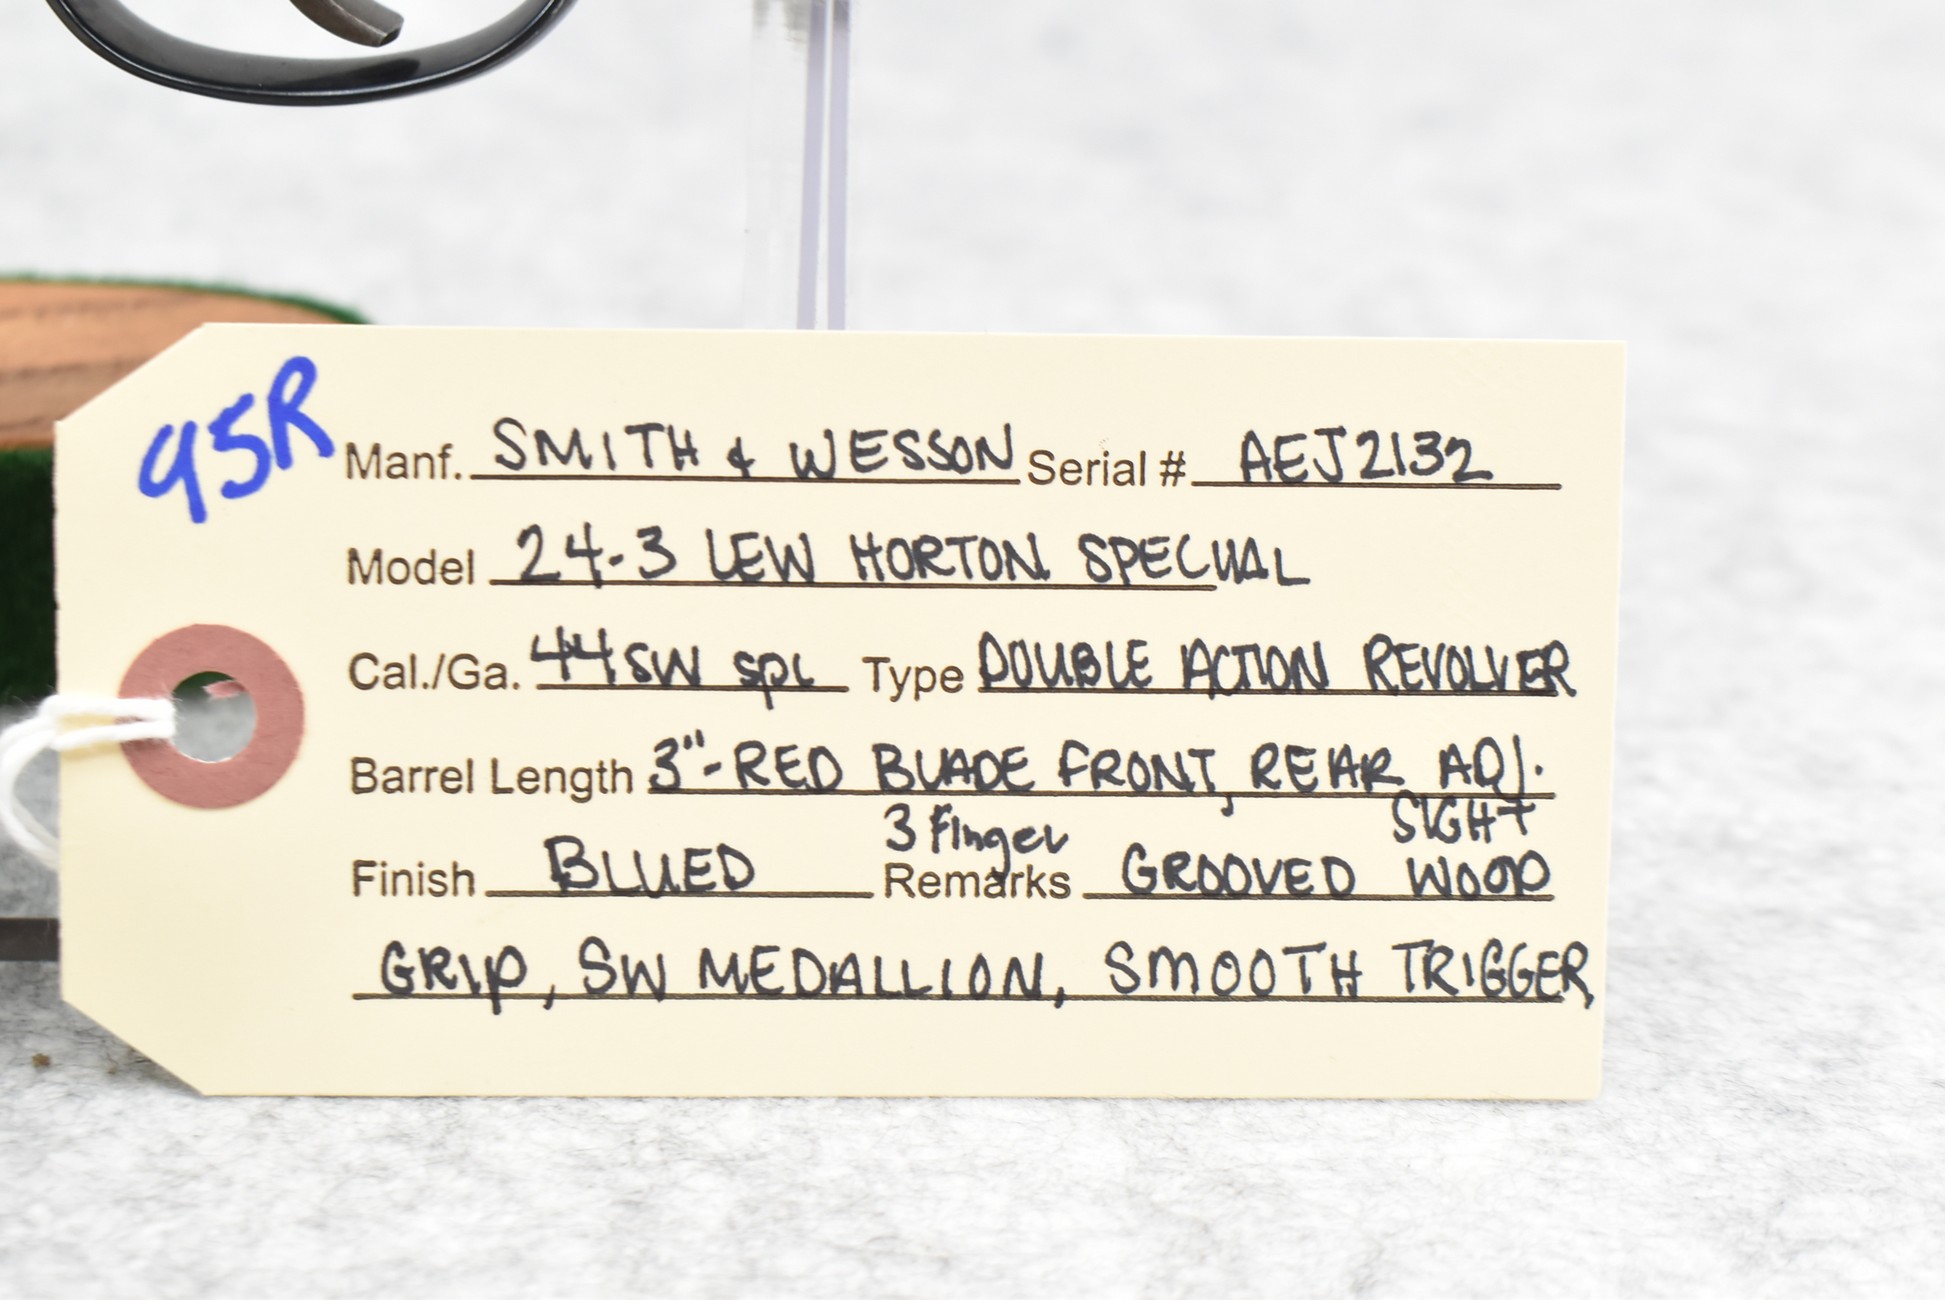 95R
Manf. SMITH & WESSON Serial # AEJ2132
Model 24-3 LEW HORTON SPECIAL
Cal./Ga. 44 SW SPL Type DOUBLE ACTION REVOLVER
Barrel Length 3"-RED BLADE FRONT, REAR ADJ.
SIGHT
3 Finger
Finish BLUED Remarks GROOVED WOOD
GRIP, SW MEDALLION, SMOOTH TRIGGER,